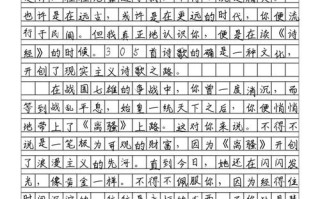 也许是在远古，或许是在更远的时代，你便流
行于民间。但我真正地认识你，便是在读《诗
经》的时候。305首诗歌的确是一种文化，
开创了现实主义诗歌之路。
在战国七雄的争战中，你曾一度消沉，而
等到战乱平息，始皇一统天下之后，你便悄悄
地带上了《离骚》上路。这对你来说，不得不
说是一笔极为可观的财富，因为《离骚》开创
了浪漫主义的先河。直到今日，她还在闪闪发
光，像黄金一样。不得不佩服你，因为经得住